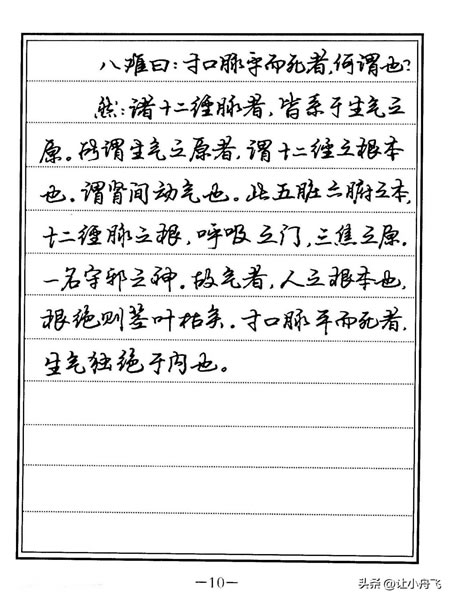 八难曰：寸口脉平而死者，何谓也？
然：诸十二经脉者，皆系于生气之
原。所谓生气之原者，谓十二经之根本
也。谓肾间动气也。此五脏六腑之本，
十二经脉之根，呼吸之门，三焦之原。
一名守邪之神。故气者，人之根本也，
根绝则茎叶枯矣。寸口脉平而死者，
生气独绝于内也。
—10—
头条 @让小舟飞